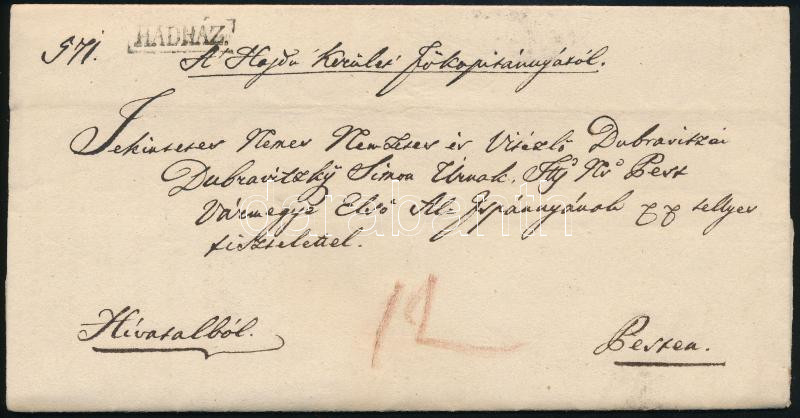 971. HADHÁZ.
A' Hajdu Kerület főkapitányától.
Tekintetes Nemes Nemzetes és Vitézlő Dubraviczai
Dubravitzky Simon Úrnak, Tttő Ns Pest
Vármegye Első Al-Ispánnyának pp tellyes
tisztelettel.
darabanth
12
Hivatalból. Pesten.